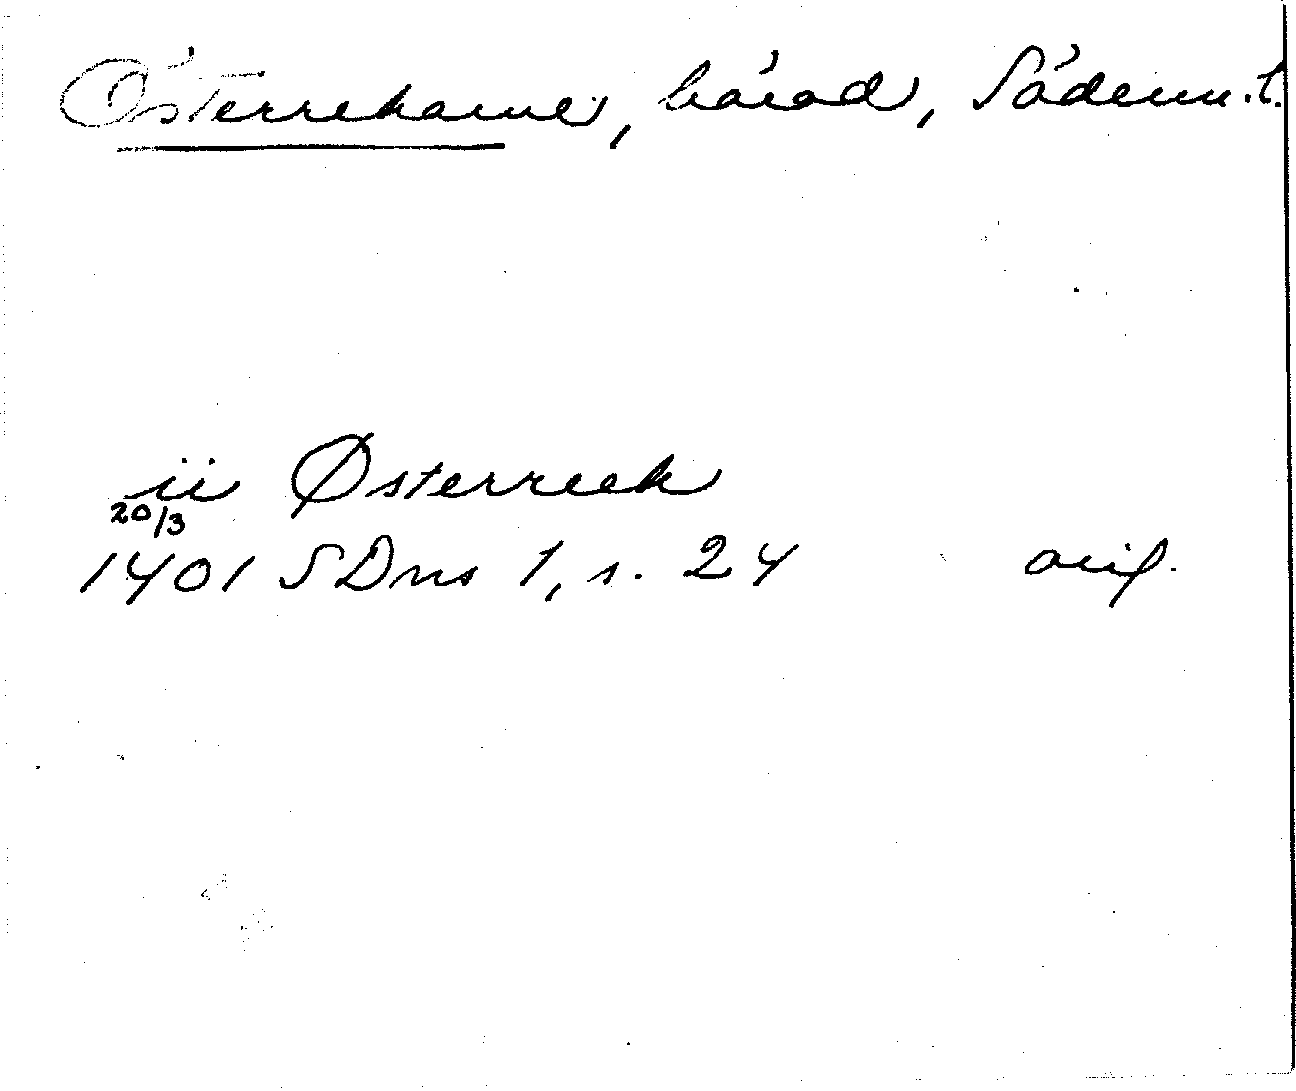 Österrekarne, härad, Söderm. l.
ii Østerreek
20/3
1401 SDns 1, s. 24 orig.